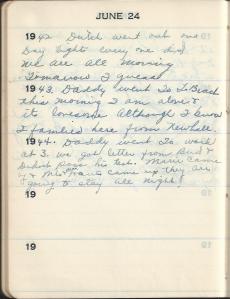 JUNE 24
1942 Dutch went out one
Day Lights every one did
we are all morning
Tomorrow I guess
1943. Daddy went to L. Beach
this morning I am alone &
its lonesome Although I know
families here from Newhall.
1944. Daddy went to work
at 3. we got letter from Bud &
Dutch pass his test. Marie came
& Mrs came up they are
going to stay all night!
19
19